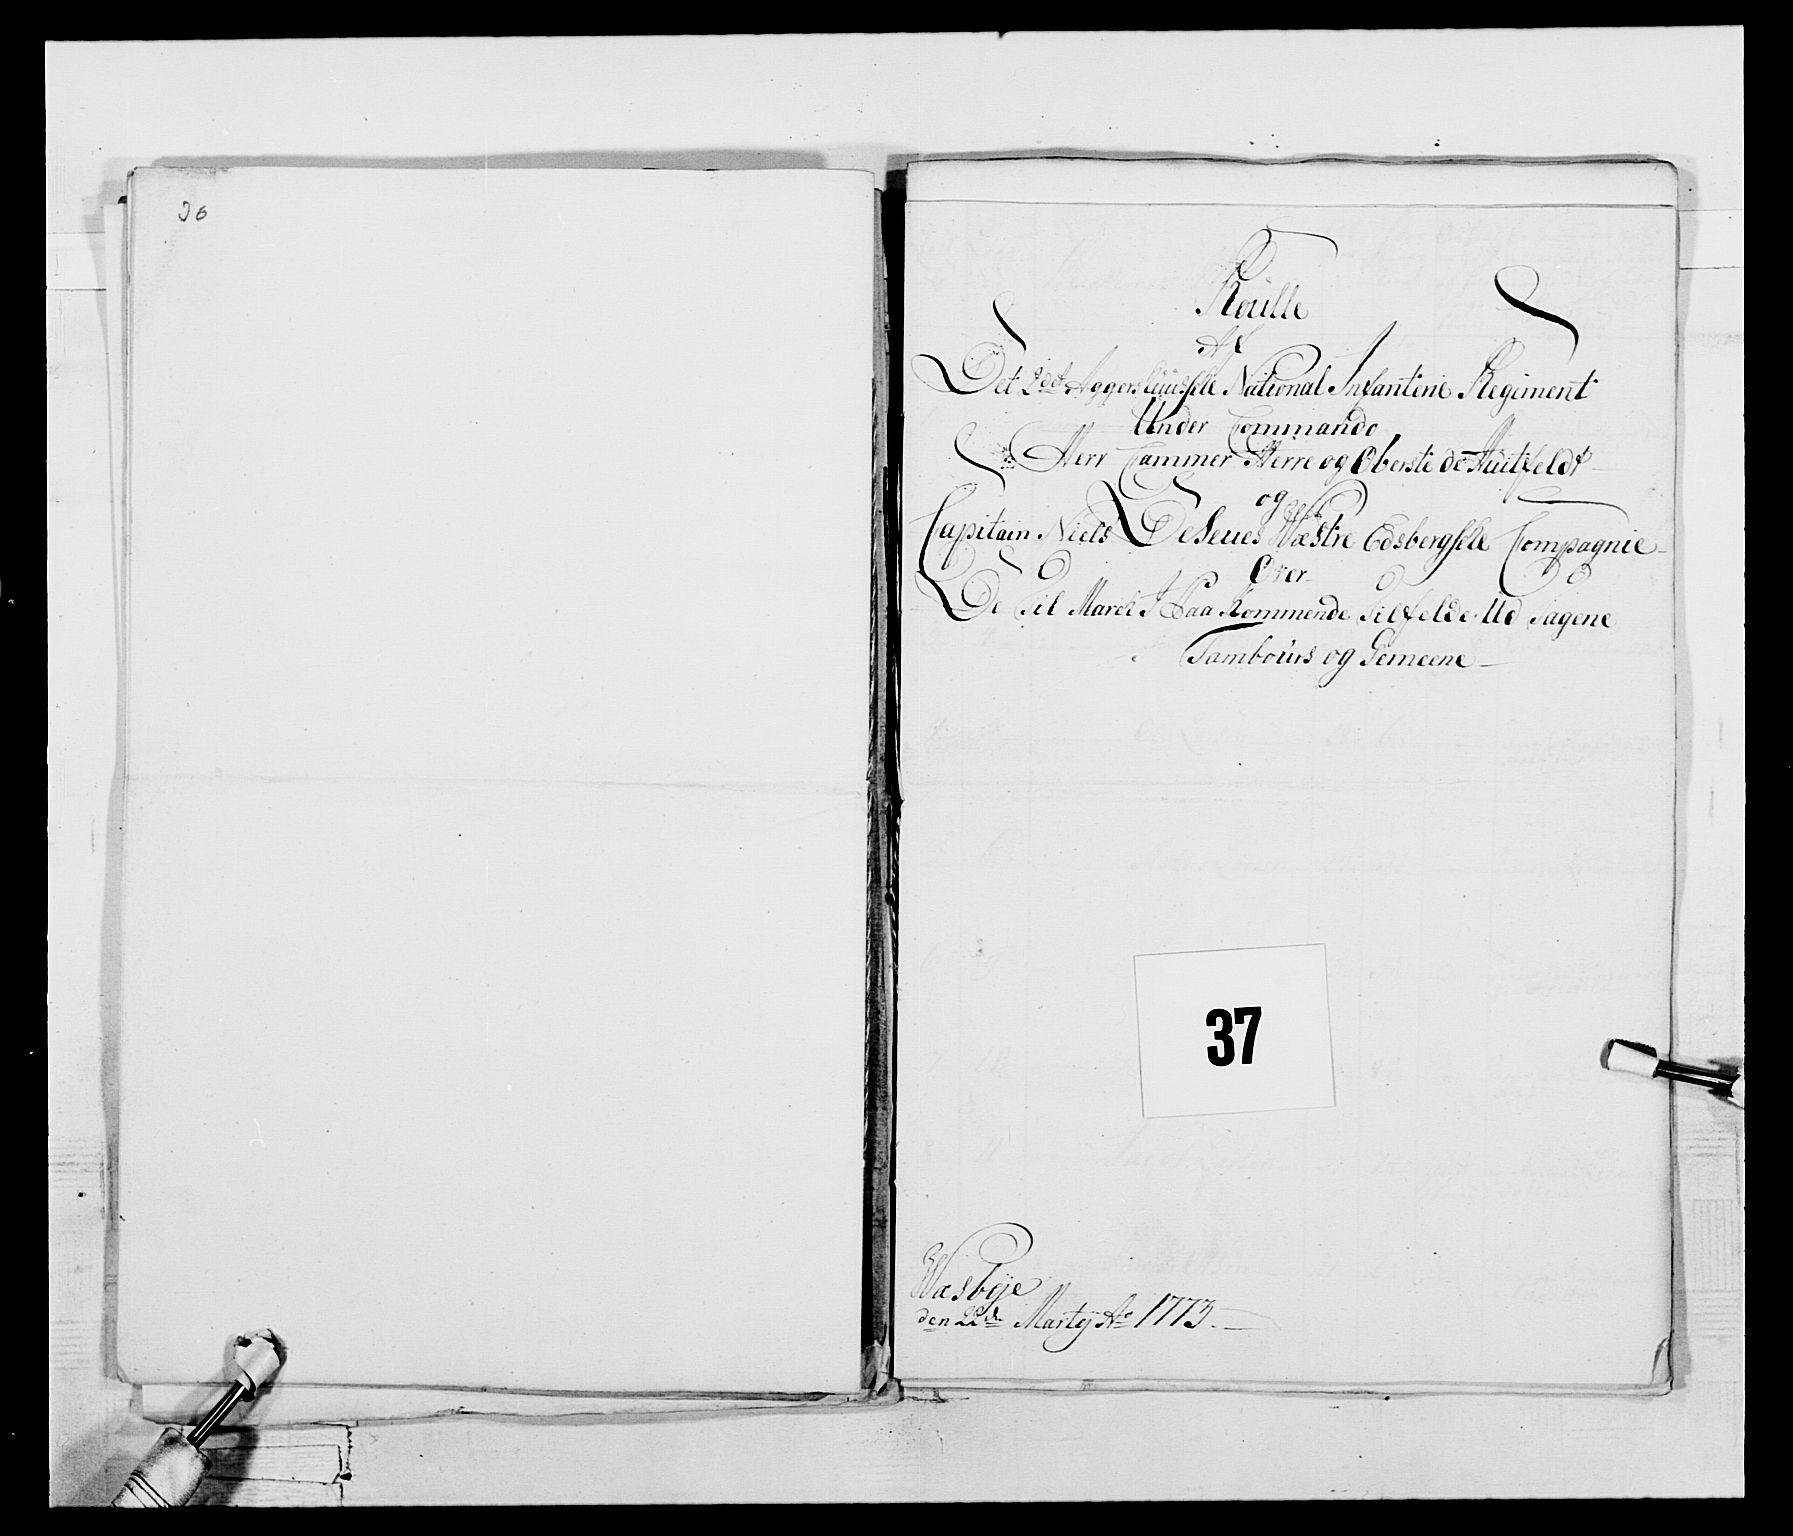 36
Roulle
Af
Det 2det Aggershuusske National Infanterie Regiment
Under Commando
Herr Cammer Herre og Oberste de Huitfeldt
og
Capitain Niels De Seues Wæstre Edsbergske Compagnie
Over
De Til March I Paa Kommende Tilfelde Ud Tagene
Tambours og Gemeene
37
Wæsbye
den 22de Martij Ao 1773.